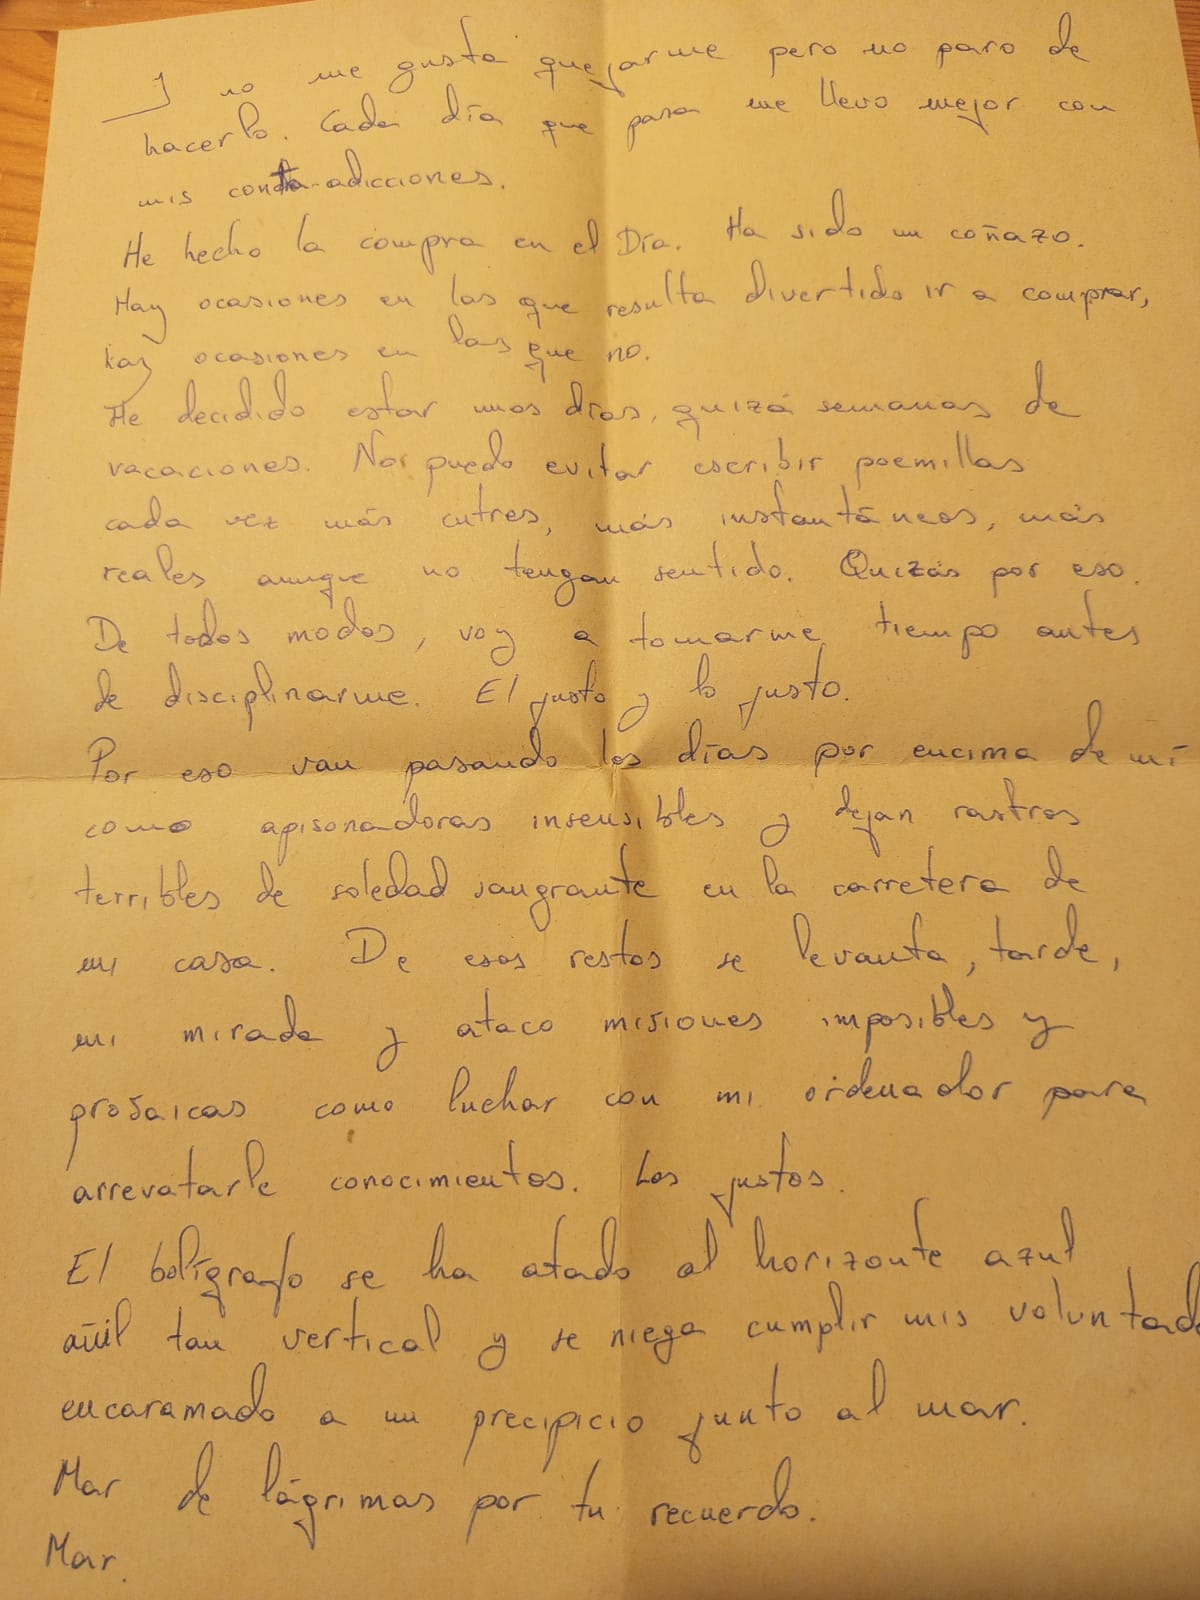 Y no me gusta quejarme pero no paro de
hacerlo. Cada día que pasa me llevo mejor con
mis contra-adicciones.
He hecho la compra en el Día. Ha sido un coñazo.
Hay ocasiones en las que resulta divertido ir a comprar,
hay ocasiones en las que no.
He decidido estar unos días, quizá semanas de
vacaciones. No puedo evitar escribir poemillas
cada vez más cutres, más instantáneos, más
reales aunque no tengan sentido. Quizás por eso.
De todos modos, voy a tomarme tiempo antes
de disciplinarme. El justo y lo justo.
Por eso van pasando los días por encima de mí
como apisonadoras insensibles y dejan rastros
terribles de soledad sangrante en la carretera de
mi casa. De esos restos se levanta, tarde,
mi mirada y ataco misiones imposibles y
prosaicas como luchar con mi ordenador para
arrevatarle conocimientos. Los justos.
El bolígrafo se ha atado al horizonte azul
añil tan vertical y se niega cumplir mis voluntade
encaramado a un precipicio junto al mar.
Mar de lágrimas por tu recuerdo.
Mar.